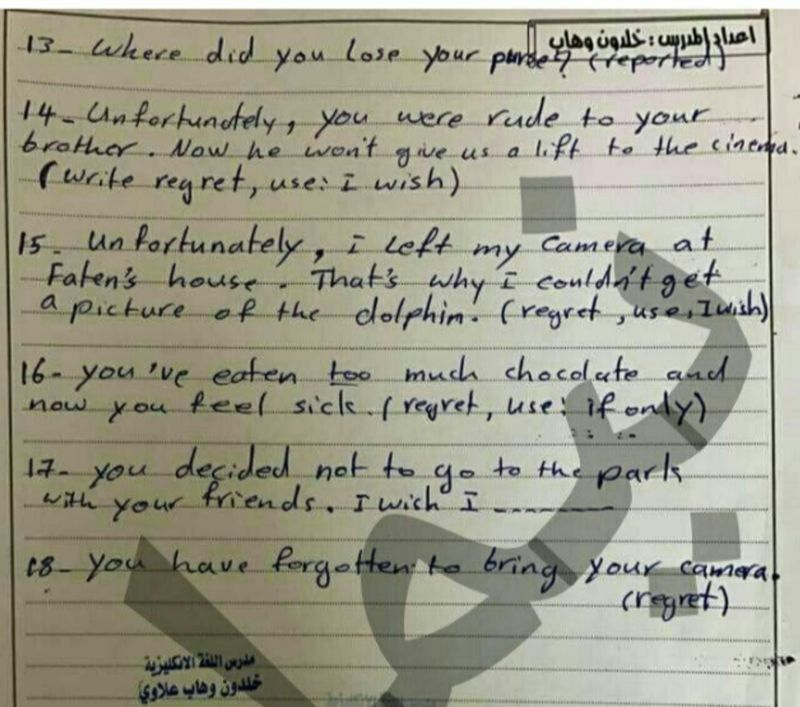 اعداد المدرس : خلدون وهاب
13- Where did you lose your purse? (reported)
14- Unfortunately, you were rude to your
brother. Now he won't give us a lift to the cinema.
(write regret, use: I wish)
15- Unfortunately, i left my camera at
Faten's house. That's why I couldn't get
a picture of the dolphin. (regret, use, I wish)
16- you've eaten too much chocolate and
now you feel sick. (regret, use: if only)
17- you decided not to go to the park
with your friends. I wish I --------
18- you have forgotten to bring your camera.
(regret)
مدرس اللغة الانكليزية
خلدون وهاب علاوي